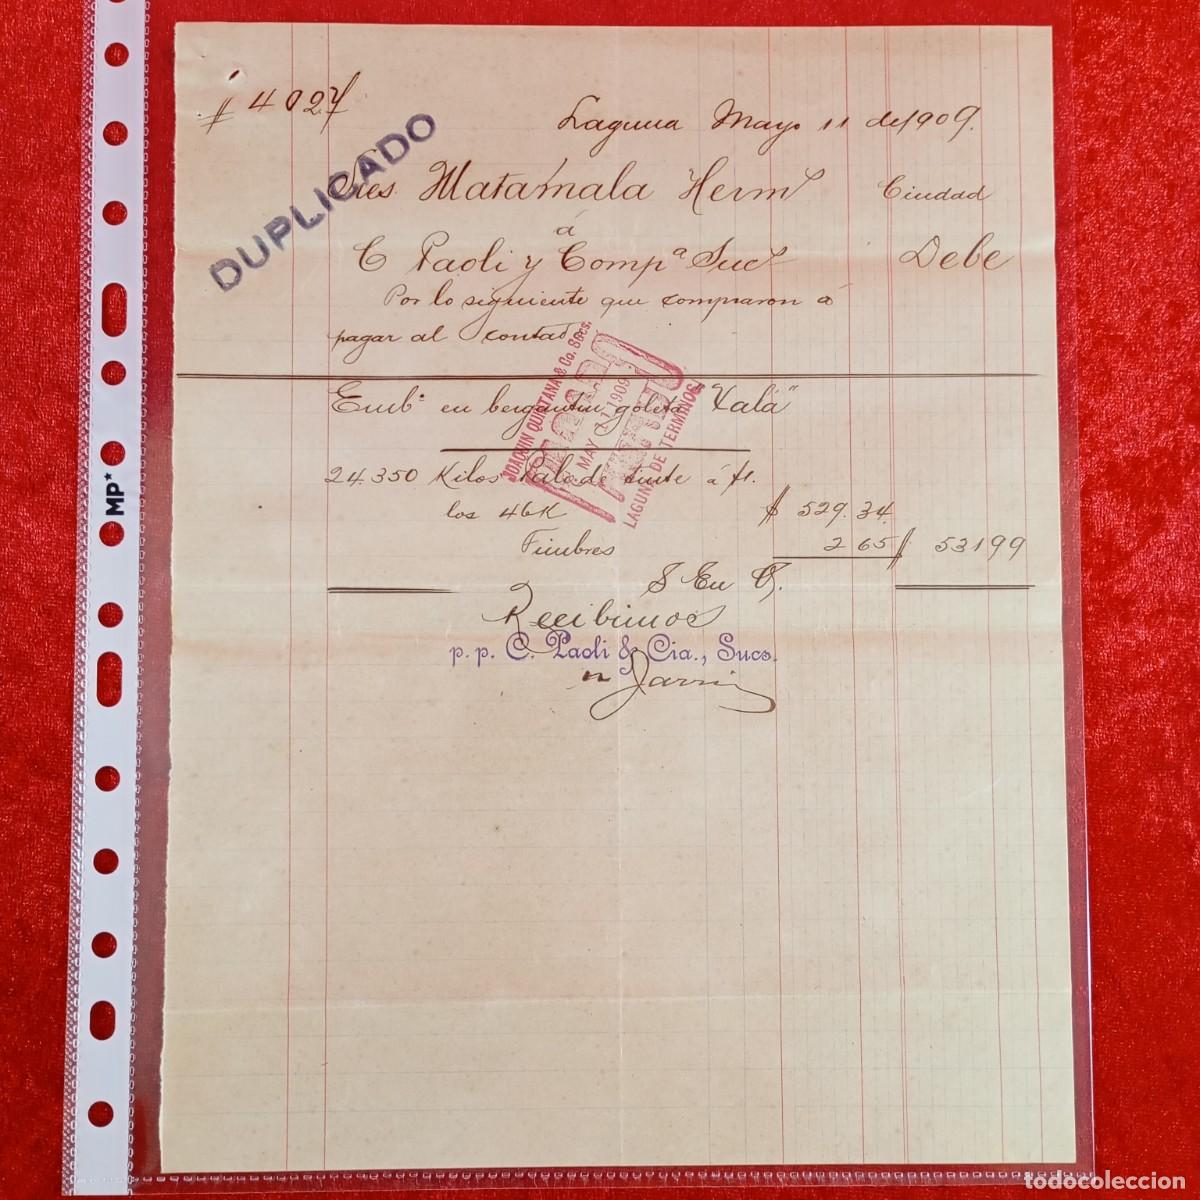 # 4027
Laguna Mayo 11 de 1909.
DUPLICADO
Sres Matamala Herms Ciudad
á
C Paoli y Compª Sucs Debe
Por lo siguiente que compraron á
pagar al contado
JOAQUIN QUINTANA & Co. Sucs.
MAY 11 1909
LAGUNA DE TERMINOS.
Embº en bergantin goleta "Xala"
24.350 Kilos Palo de tinte á $1.
los 46K $ 529.34
Timbres 2 65 $ 53199
S En O,
Recibimos
p. p. C. Paoli & Cia., Sucs.
MP*
todocoleccion